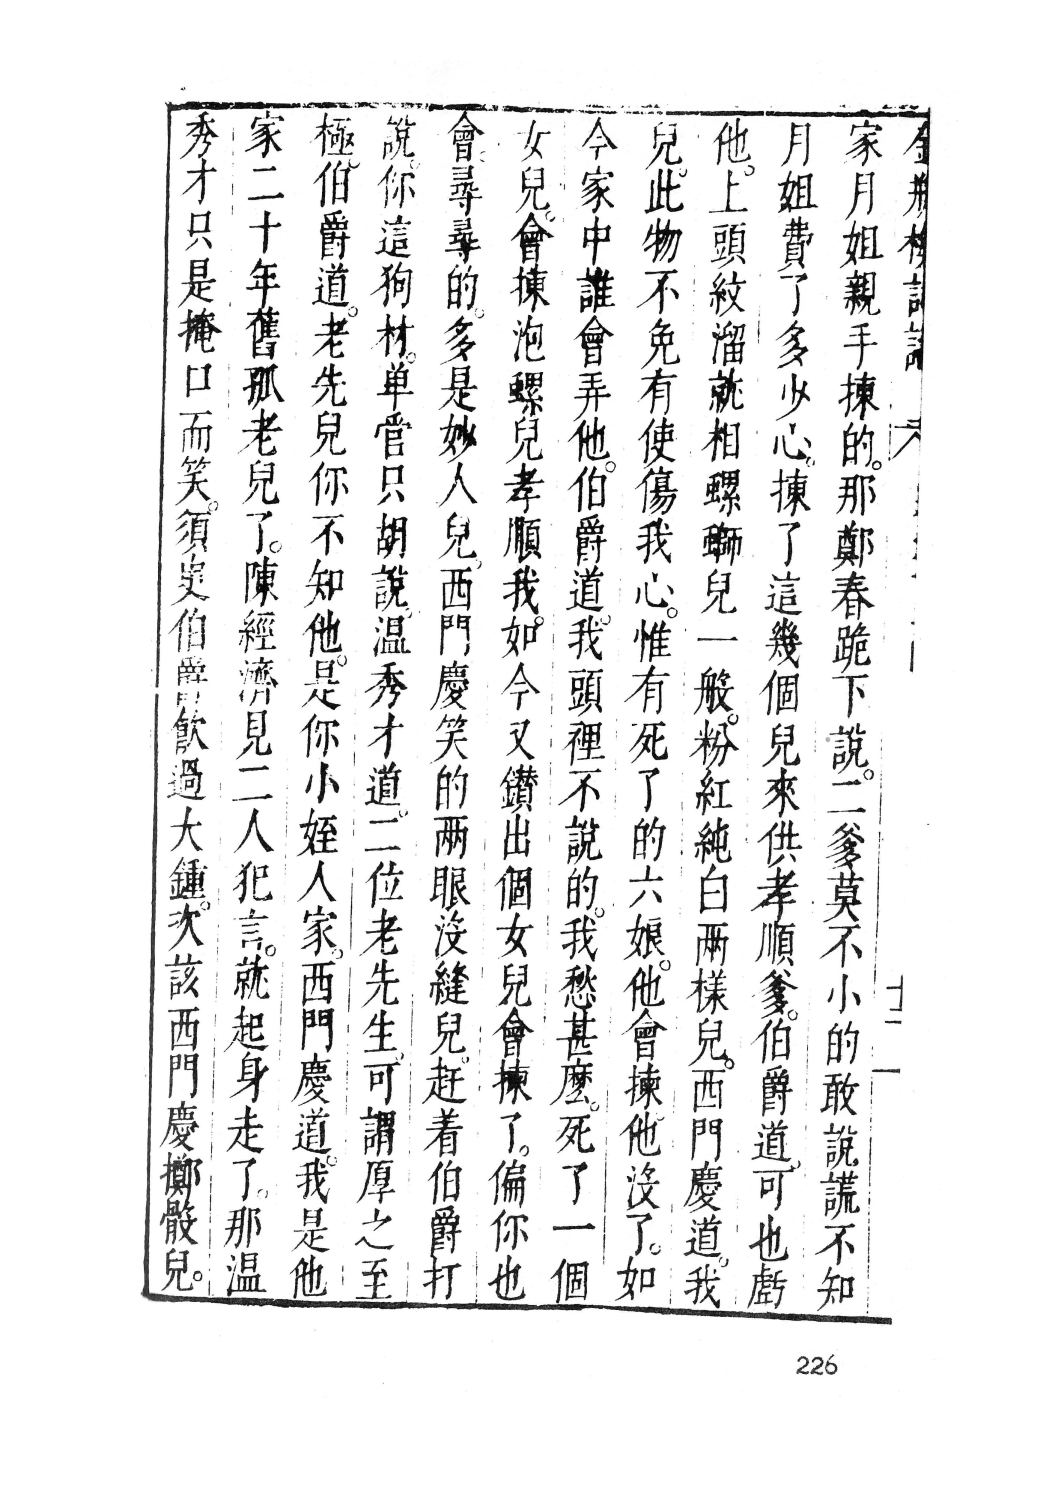 金瓶梅詞話
家月姐親手揀的。那鄭春跪下說。二爹莫不小的敢說謊不知
月姐費了多少心。揀了這幾個兒來供孝順爹。伯爵道。可也虧
他。上頭紋溜就相螺螄兒一般。粉紅純白兩樣兒。西門慶道。我
兒。此物不免有使傷我心。惟有死了的六娘。他會揀他沒了。如
今家中誰會弄他。伯爵道。我頭裡不說的。我愁甚麼。死了一個
女兒。會揀泡螺兒孝順我。如今又鑽出個女兒會揀了。偏你也
會尋尋的。多是妙人兒。西門慶笑的兩眼沒縫兒。赶着伯爵打
說。你這狗材。单管只胡說。温秀才道。二位老先生。可謂厚之至
極。伯爵道。老先兒你不知他。是你小姪人家。西門慶道。我是他
家二十年舊孤老兒了。陳經濟見二人犯言。就起身走了。那温
秀才只是掩口而笑。須臾伯爵飲過大鍾。次該西門慶擲骰兒。
226